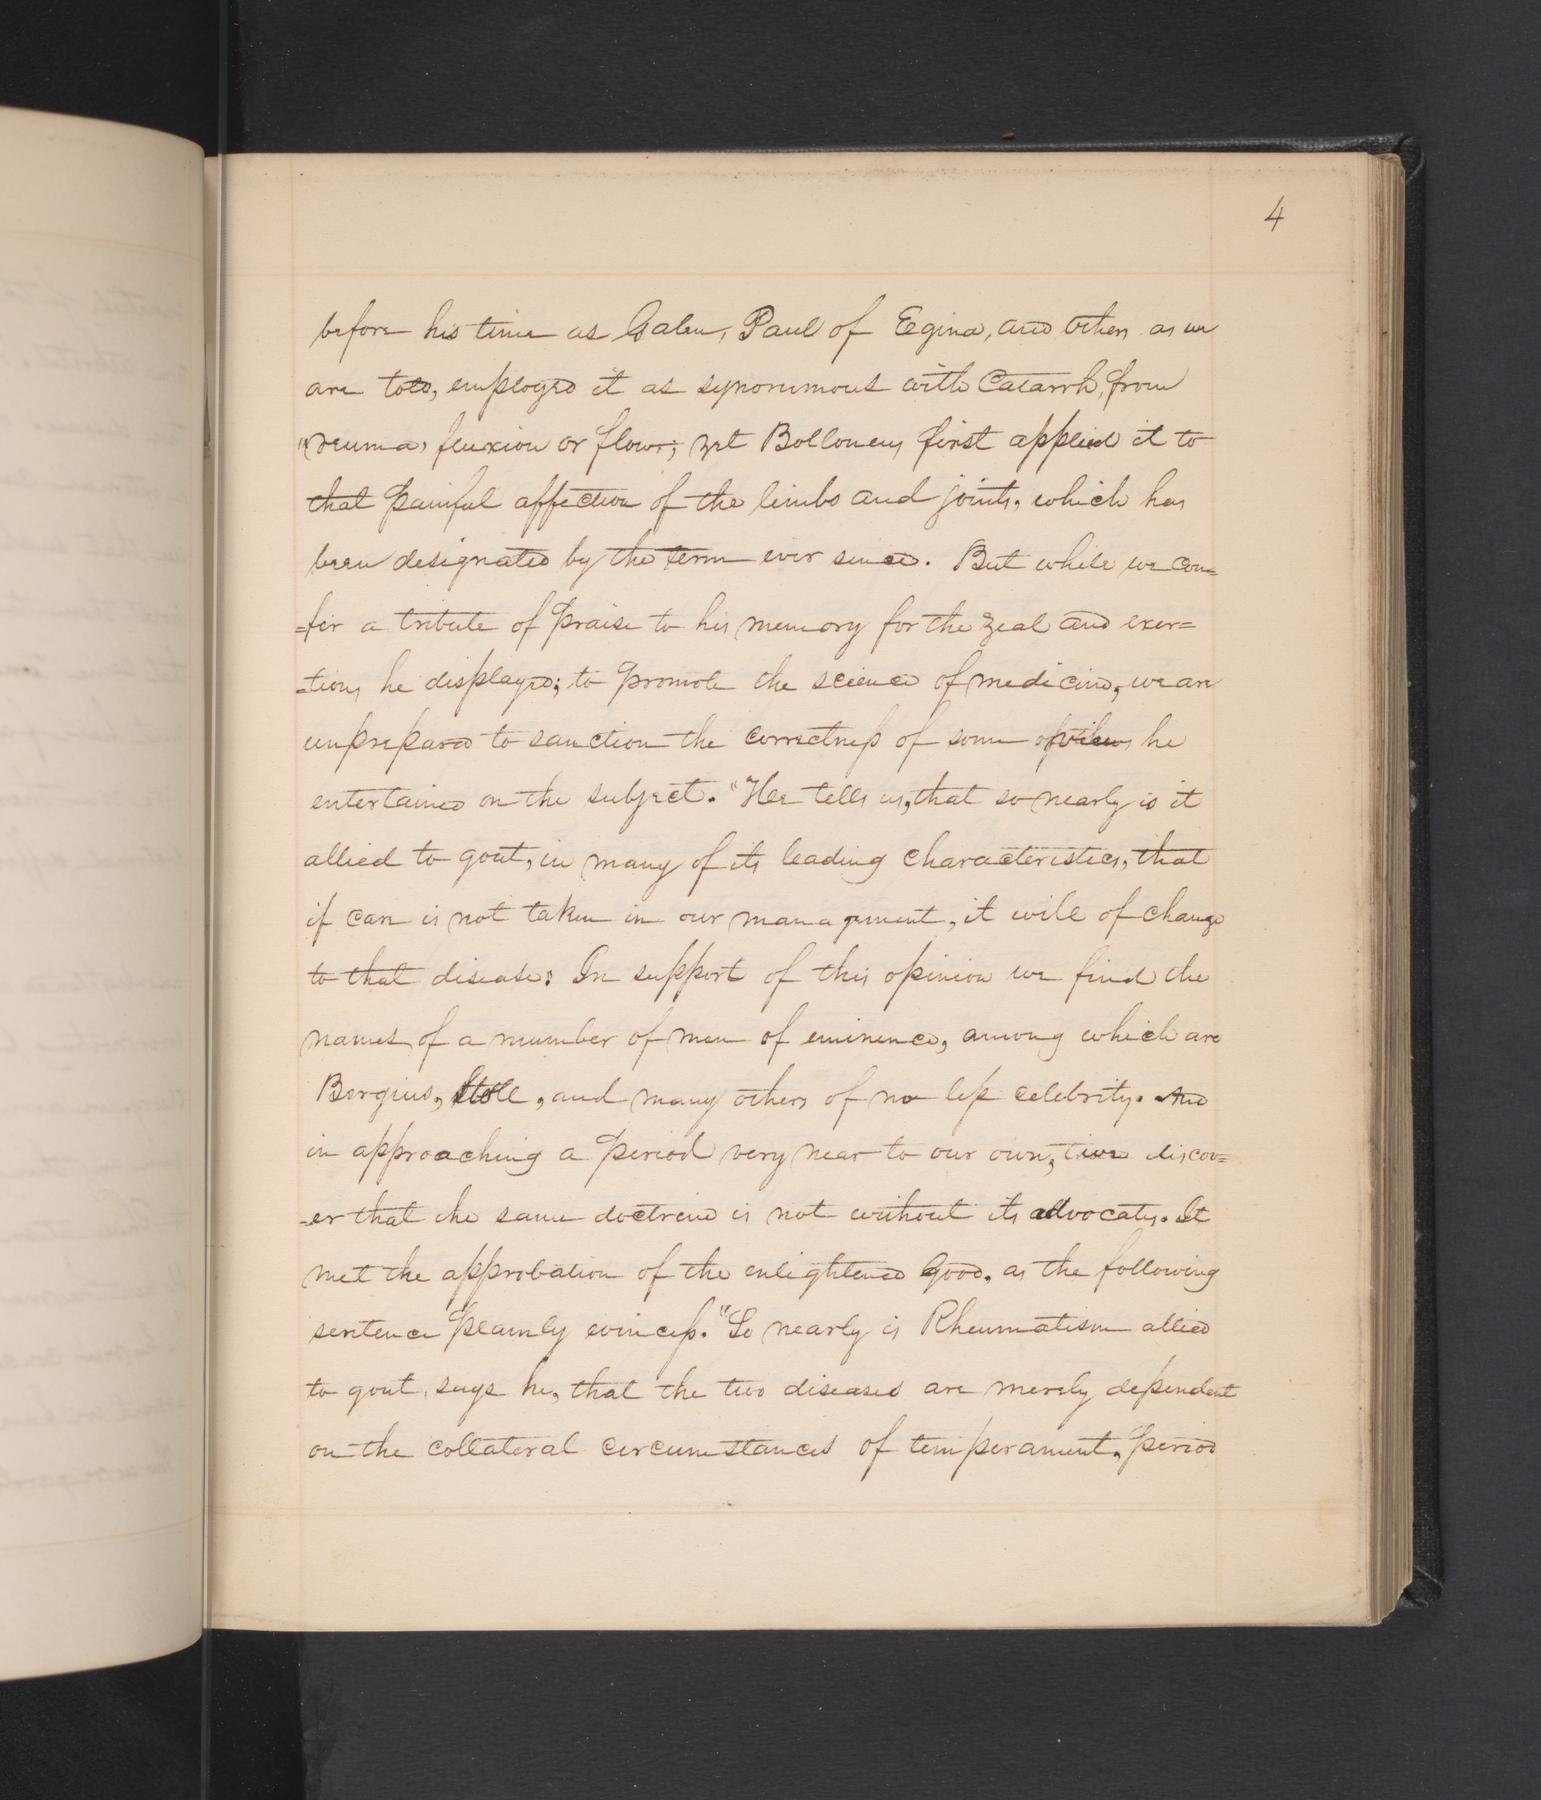 4
before his time as Galen, Paul of Egina, and others as we
are told, employed it as synonimous with Catarrh, from
"reuma, fluxion or flow; yet Bolloneus first applied it to
that painful affection of the limbs and joints, which has
been designated by the term ever since. But while we con=
=fer a tribute of praise to his memory for the zeal and exer=
=tions he displayed; to promote the science of medicine, we are
unprepared to sanction the correctness of some of views he
entertained on the subject. "He tells us, that so nearly is it
allied to gout, in many of its leading characteristics, that
if care is not taken in our management, it will of change
to that disease: In support of this opinion we find the
names of a number of men of eminence, among which are
Bergius, Stoll, and many others of no less celebrity. And
in approaching a period very near to our own, we discov=
=er that the same doctrine is not without its advocates. It
met the approbation of the enlightened Good, as the following
sentence plainly evincess. "So nearly is Rheumatism allied
to gout, says he, that the two diseases are merely dependent
on the collateral circumstances of temperament, period